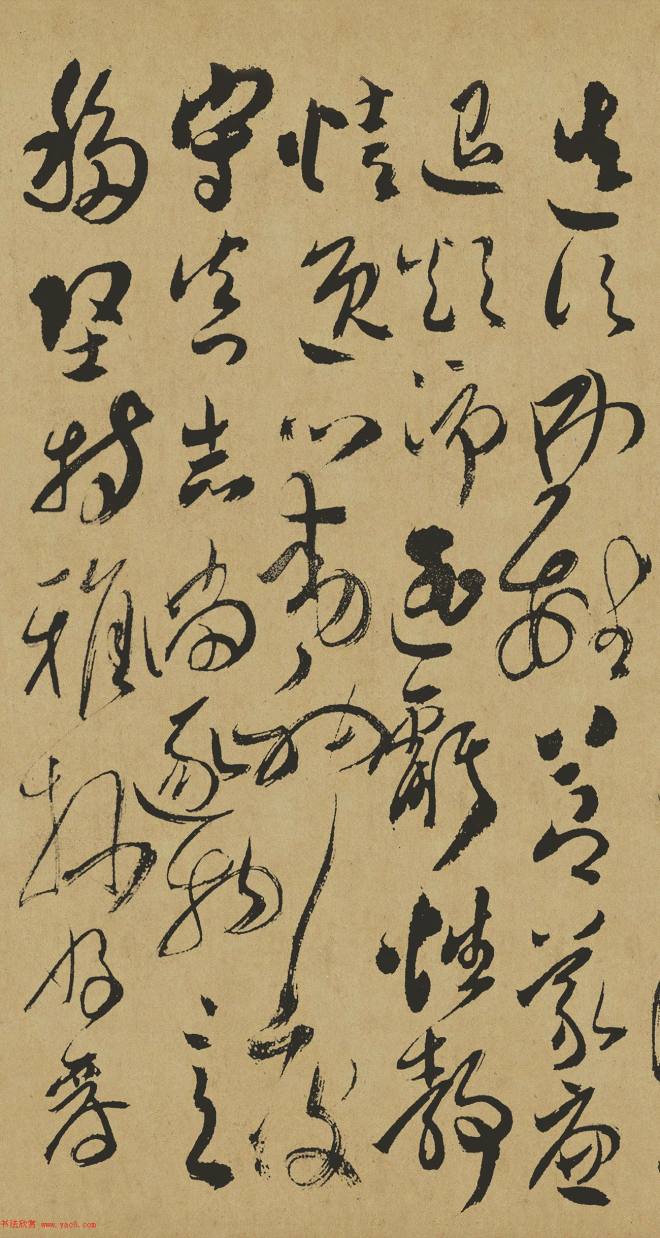 造次弗離節義廉
退顛沛匪虧性靜
情逸心動神疲
守真志滿逐物意
移堅持雅操好爵
书法欣赏 www.yac8.com